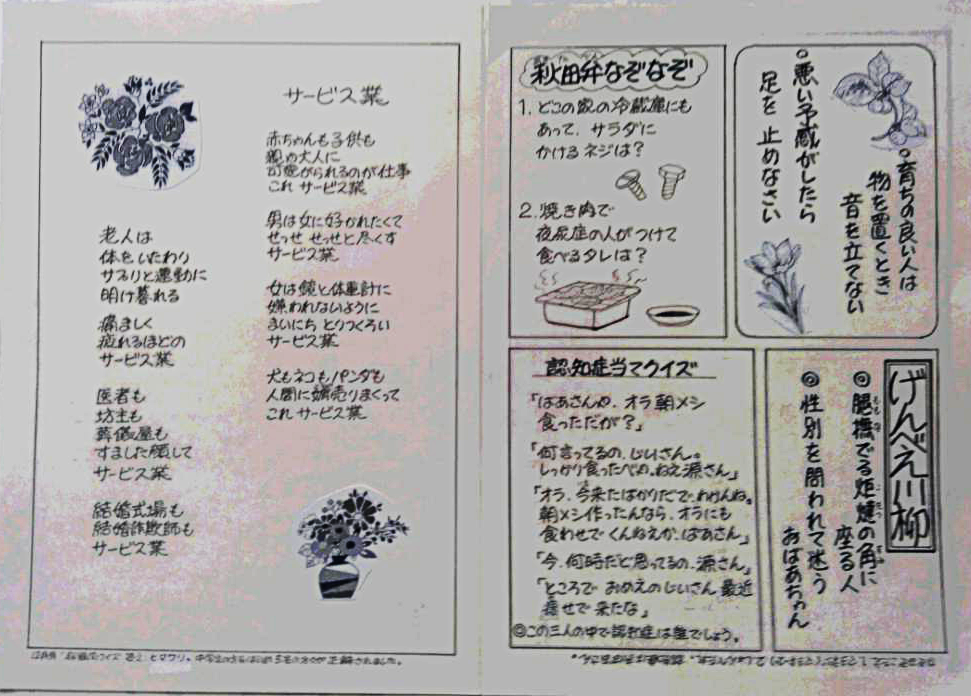 サービス業
赤ちゃんも子供も
親や大人に
可愛がられるのが仕事
これ サービス業
男は女に好かれたくて
せっせ せっせと尽くす
サービス業
女は鏡と体重計に
嫌われないように
まいにち とりつくろい
サービス業
犬もネコもパンダも
人間に媚売りまくって
これ サービス業
老人は
体をいたわり
サプリと運動に
明け暮れる
痛ましく
疲れるほどの
サービス業
医者も
坊主も
葬儀屋も
すました顔して
サービス業
結婚式場も
結婚詐欺師も
サービス業
ヒマワリ。
が正解されました。
◦育ちの良い人は
物を置くとき
音を立てない
◦悪い予感がしたら
足を 止めなさい
秋田弁なぞなぞ
1. どこの家の冷蔵庫にも
あって、サラダに
かけるネジは?
2. 焼き肉で
夜尿症の人がつけて
食べるタレは?
げんべえ川柳
◎腿機でる炬燵の角に
座る人
◎性別を問われて迷う
おばあちゃん
認知症当てクイズ
「ばあさんや、オラ朝メシ
食っただが?」
「何言ってるの、じいさん。
しっかり食ったべや、ねえ源さん」
「オラ、今来たばかりだで、わかんね。
朝メシ作ったんなら、オラにも
食わせでくんねえか、ばあさん」
「今、何時だど思ってるの、源さん」
「ところで おめえのじいさん 最近
痩せで来たな」
◎この三人の中で認知症は誰でしょう。